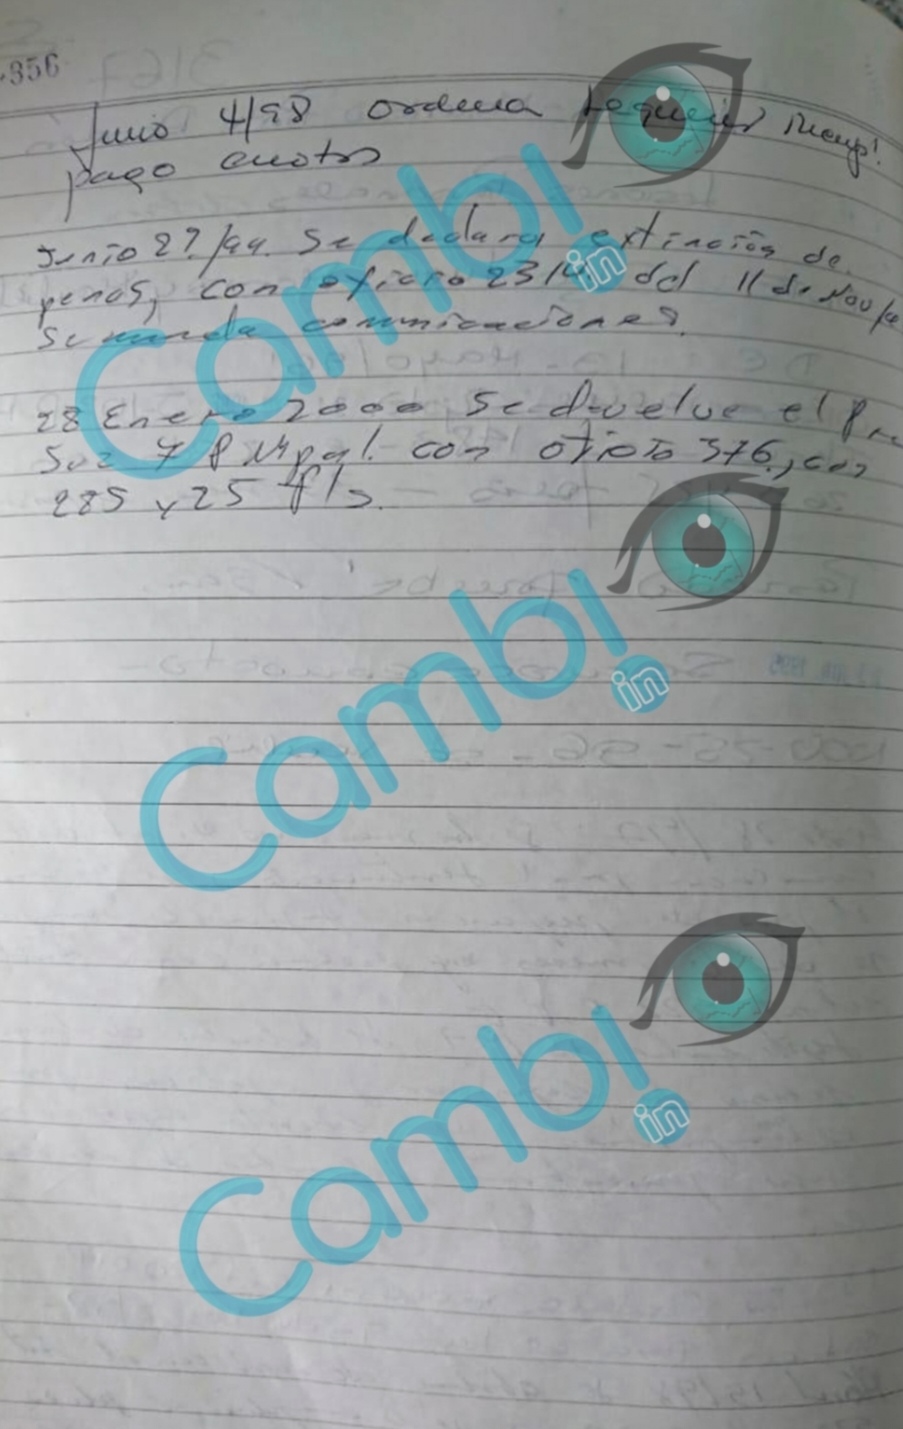 356
Junio 4/98 ordena requerir
pago cuotas
Junio 29/99. Se declara extinción de
penas, con oficio 2314 del 11 de Nov/
se manda comunicaciones.
28 Enero 2000 Se devuelve el
Juz 7 P Mpal. con oficio 376, con
285 y 25 fls.
Cambiin
Cambiin
Cambiin